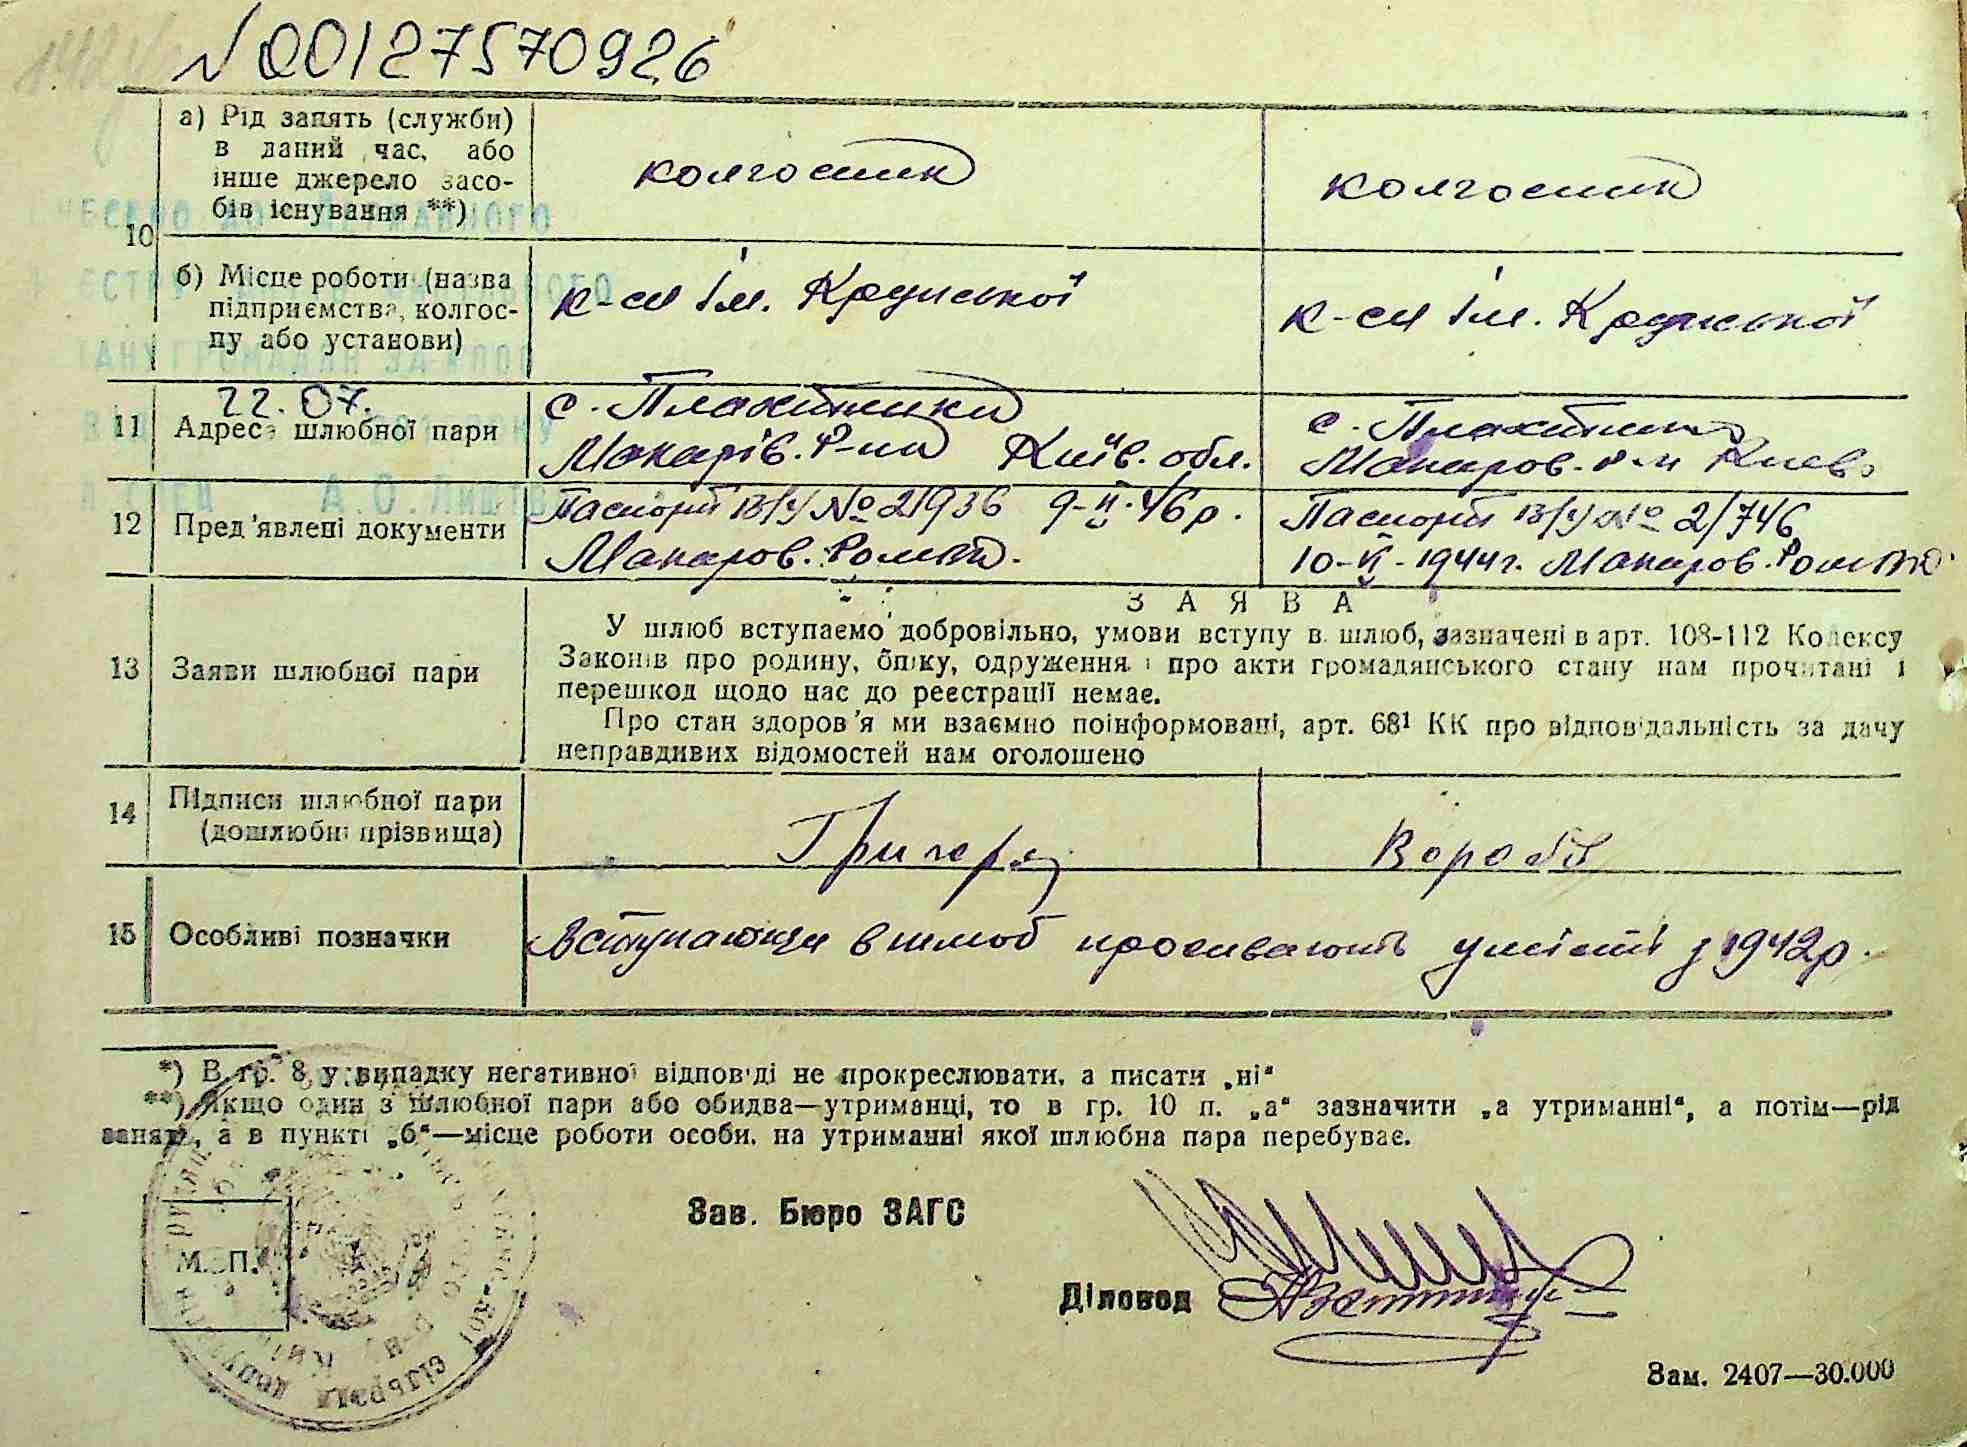 N 00127570926
10
а) Рід занять (служби)
в даний час, або
інше джерело засо-
бів існування **)
колгоспник
колгоспник
б) Місце роботи (назва
підприємства, колгос-
пу або установи)
к-сп ім. Крупської
к-сп ім. Крупської
22.07.
11 Адреса шлюбної пари
с. Плахтянка
Макарів. р-на Київ. обл.
с. Плахтянка
Макаров. р-н Киев.
12 Пред'явлені документи
Паспорт № 21936 9-II-46р.
Макаров.
Паспорт № 2/746
10-VI-1944г. Макаров.
13 Заяви шлюбної пари
ЗАЯВА
У шлюб вступаємо добровільно, умови вступу в шлюб, зазначені в арт. 108-112 Кодексу
Законів про родину, опіку, одруження і про акти громадянського стану нам прочитані і
перешкод щодо нас до реєстрації немає.
Про стан здоров'я ми взаємно поінформовані, арт. 68¹ КК про відповідальність за дачу
неправдивих відомостей нам оголошено
14 Підписи шлюбної пари
(дошлюбні прізвища)
15 Особливі позначки
Вступающи в шлюб проживають у місті з 1942р.
*) В гр. 8 у випадку негативної відповіді не прокреслювати, а писати „ні“
**) Якщо один з шлюбної пари або обидва—утриманці, то в гр. 10 п. „а“ зазначити „а утриманні“, а потім—рід
занять, а в пункті „б“—місце роботи особи, на утриманні якої шлюбна пара перебуває.
М. П.
Зав. Бюро ЗАГС
Діловод
Зам. 2407—30.000